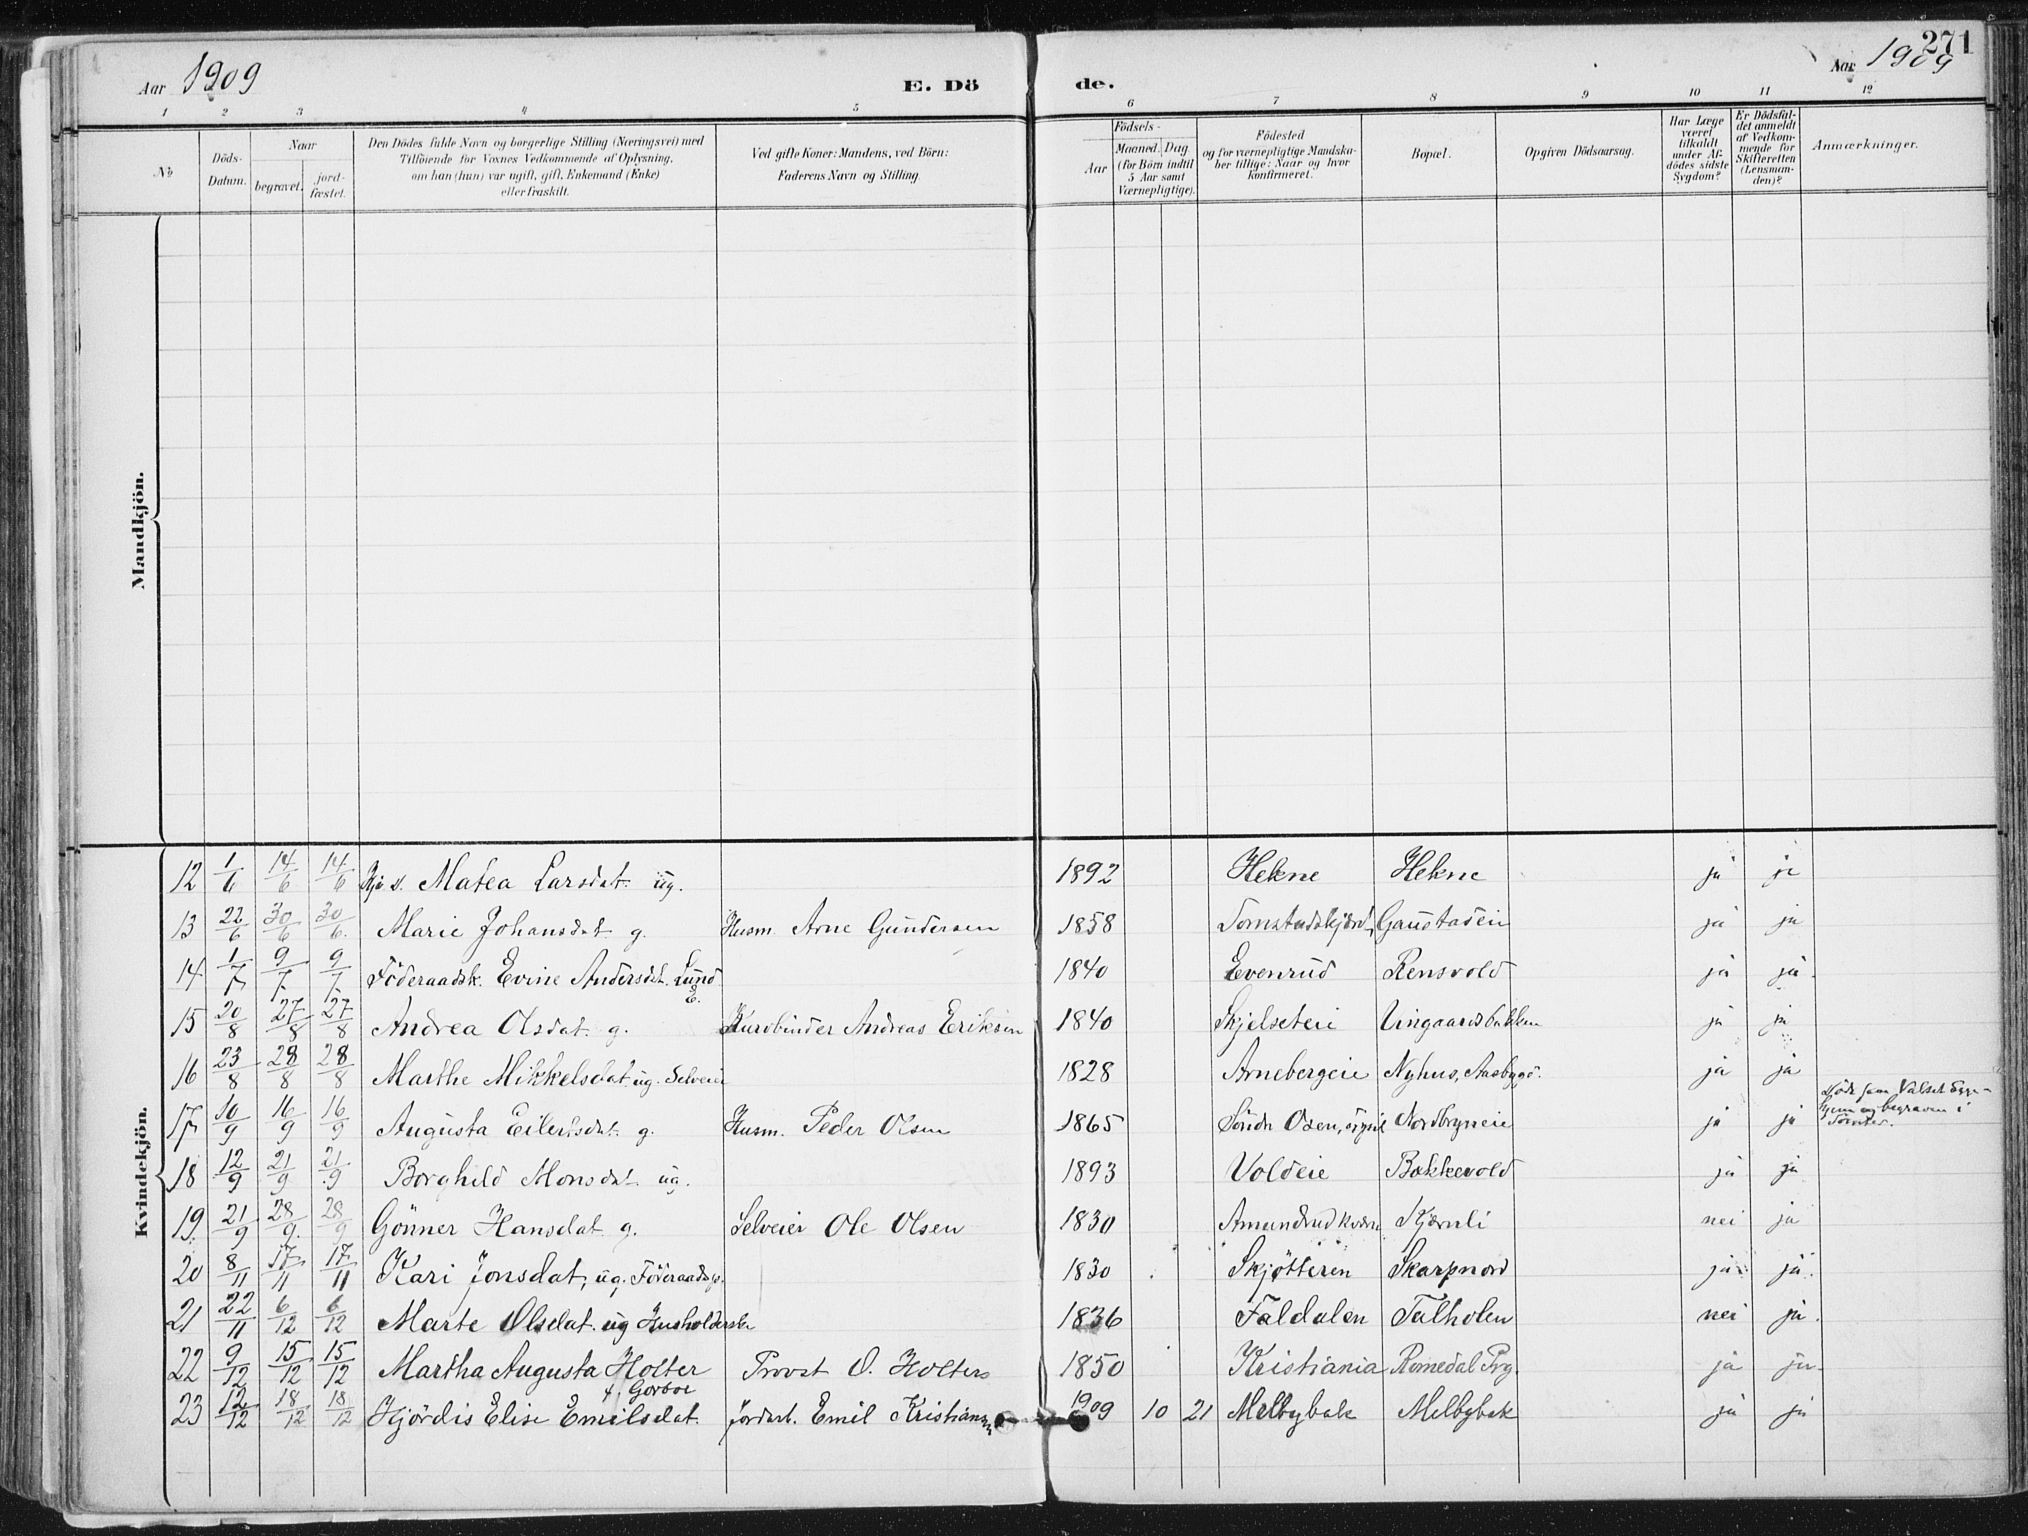 271
Aar 1909 E. Dö de. Aar 1909
1 2 3 4 5 6 7 8 9 10 11 12
№ Döds-Datum. Naar begravet. jord-fæstet. Den Dödes fulde Navn og borgerlige Stilling (Næringsvei) med Tilföiende for Voxnes Vedkommende af Oplysning, om han (hun) var ugift, gift, Enkemand (Enke) eller fraskilt. Ved gifte Koner: Mandens, ved Börn: Faderens Navn og Stilling. Födsels- Aar Maaned. Dag (for Börn indtil 5 Aar samt Værnepligtige). Födested og for værnepligtige Mandskaber tillige: Naar og hvor konfirmeret. Bopæl. Opgiven Dödsaarsag. Har Læge været tilkaldt under Afdödes sidste Sygdom? Er Dödsfaldet anmeldt af Vedkommende for Skifteretten (Lensmanden)? Anmærkninger.
Mandkjön.
Kvindekjön.
12 1/6 14/6 14/6 Matea Larsdat. ug. 1892 Hekne Hekne ja ja
13 22/6 30/6 30/6. Marie Johansdat g. Husm. Arne Gundersen 1858 Gaustadeie ja ja
14 1/7 9/7. 9/7. Föderaadsk. Evine Andersdat. Lund E. 1840 Evenrud Rensvold ja ja.
15 20/8 27/8 27/8 Andrea Olsdat g. Kurvbinder Andreas Eriksen 1840 Skjelseteie Vingaardsbakken ja ja
16 23/8 28/8 28/8 Marthe Mikkelsdat. ug. Selveier 1828 Arnebergeie Nyhus, Aasbygd. ja ja
17 10/9 16/9 16/9 Augusta Eilertsdat. g. Husm. Peder Olsen 1865 Söndr Osen, Trysil Nordbryneie ja ja Död paa Valset Begravet i
18 12/9 21/9 21/9 Borghild Monsdat ug. 1893 Voldeie Bakkevold ja ja
19. 21/9 28/9. 28/9 Gönner Hansdat g. Selveier Ole Olsen 1830 Amundrud Kværn Kjernli nei ja
20 8/11 17/11 17/11 Kari Jonsdat, ug. Föderaads 1830 Skjötteren Skarpnord ja ja.
21 22/11 6/12 6/12 Marte Olsdat. ug Husholderske 1836 Faldalen Talholen nei ja.
22 9/12 15/12 15/12 Martha Augusta Holter f. Gorbor Provst O. Holters 1850 Kristiania Romedal Prg. ja ja.
23 12/12 18/12 18/12 Hjördis Elise Emilsdat. Jordarb. Emil Kristiansen 1909 10 21 Melbybak Melbybak ja ja